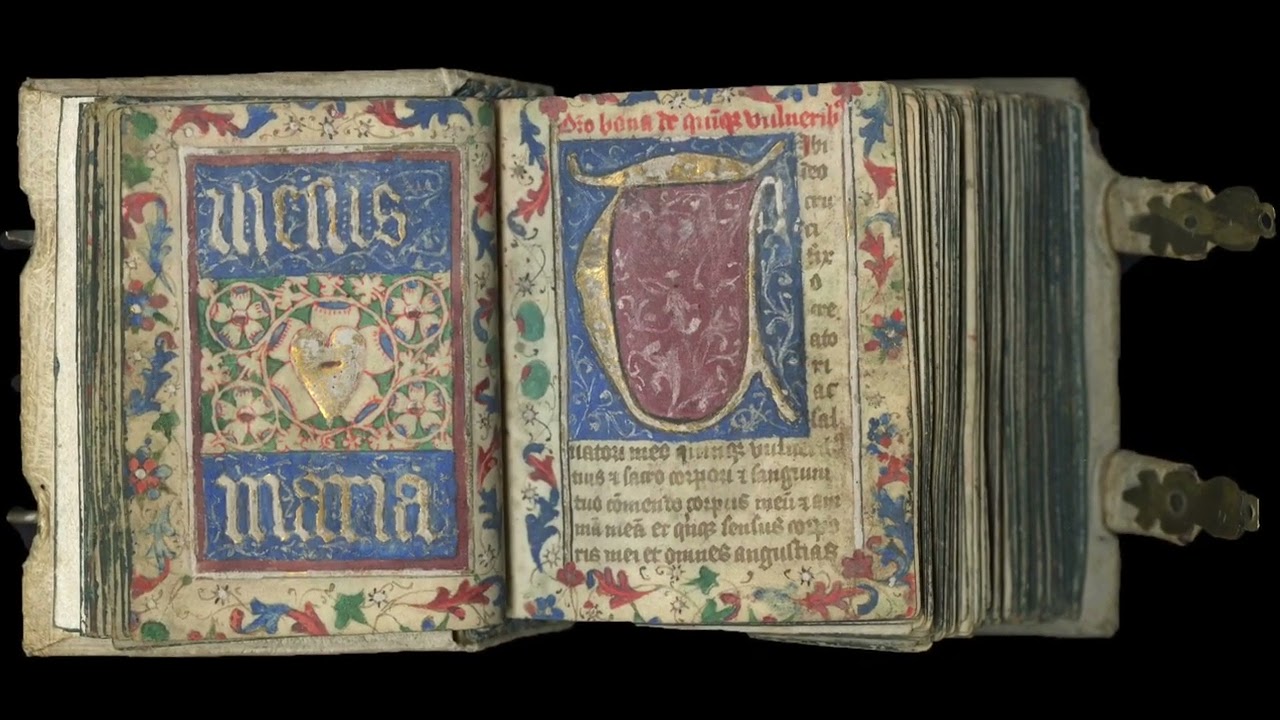 ihesus
maria
Oro bona de quīqꝫ vulnerib⁹
Tibi
deo
cru
ci
fix
o
cre
ato
ri
ac
sal
uatori meo quinqꝫ
tuis ⁊ sacro corpori ⁊ sanguini
tuo cōmendo corpus meū ⁊ ani
mā meā et qīqꝫ sensus corpo
ris mei et omnes angustias